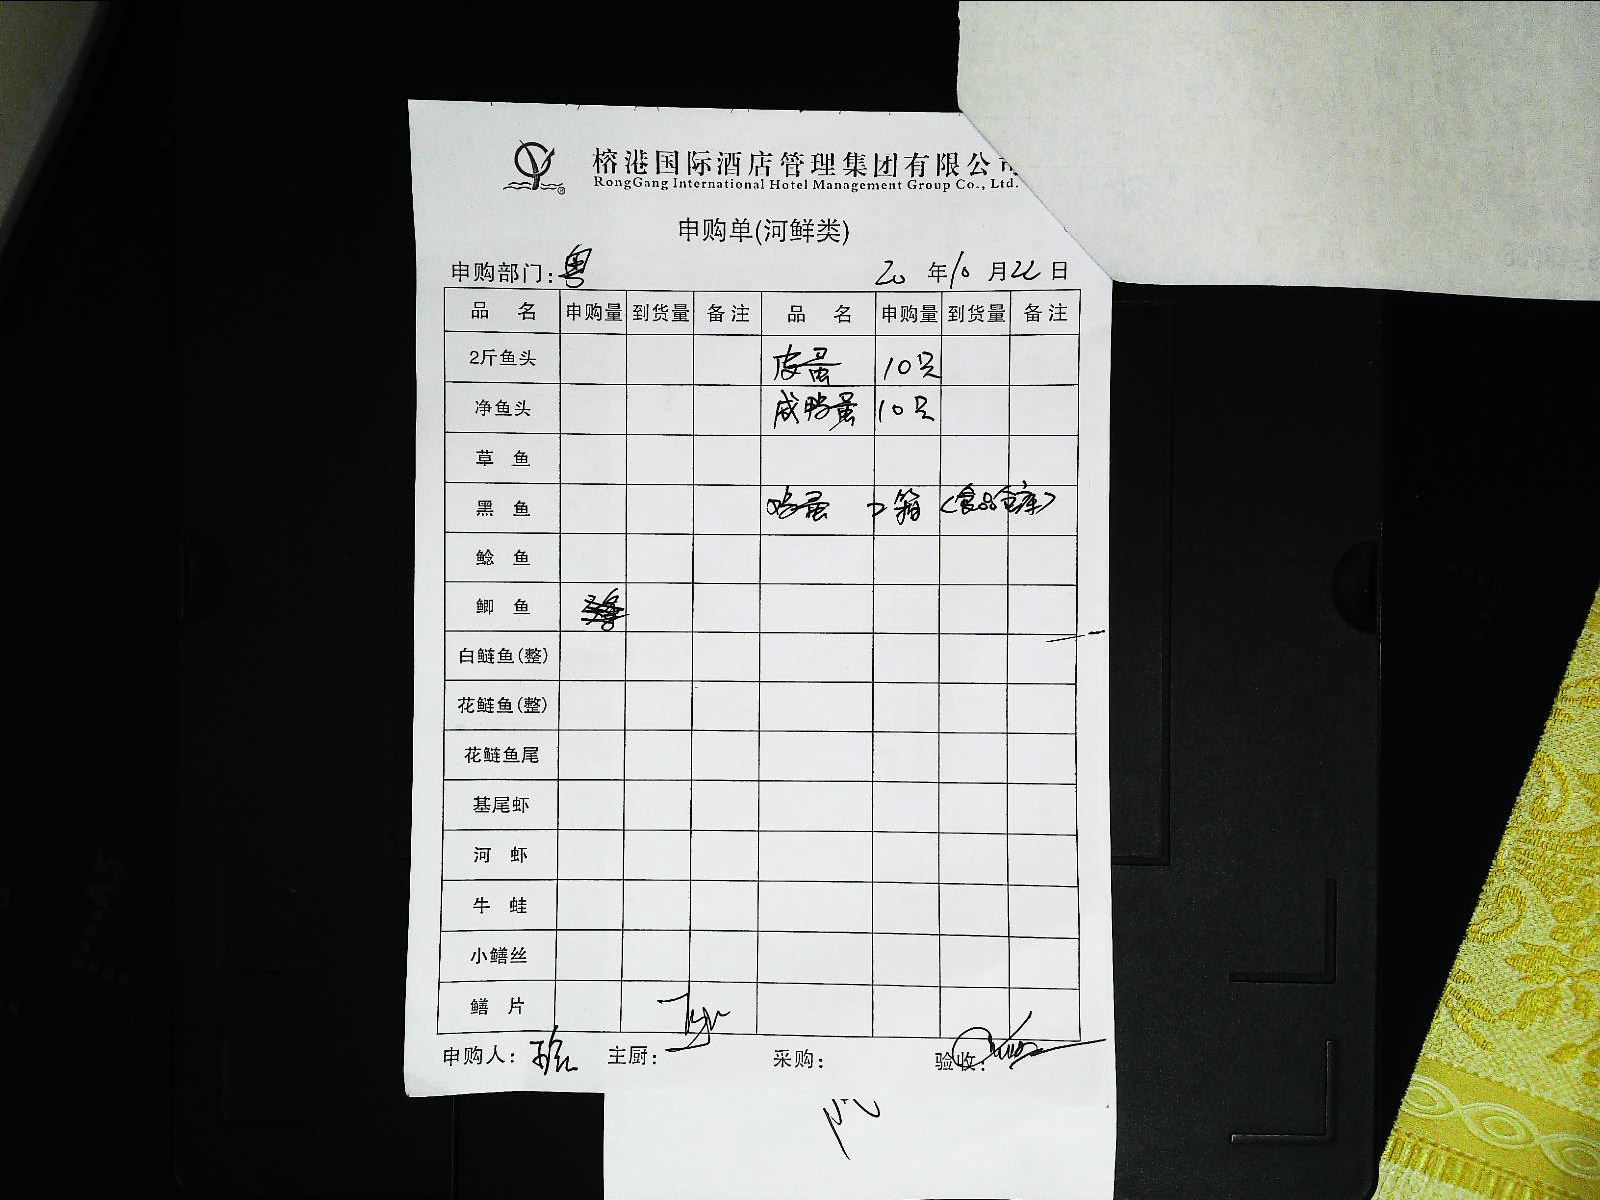 榕港国际酒店管理集团有限公司
RongGang International Hotel Management Group Co., Ltd.
申购单(河鲜类)
申购部门: 粤 20 年 10 月 22 日
品 名 申购量 到货量 备注 品 名 申购量 到货量 备注
2斤鱼头 皮蛋 10只
净鱼头 咸鸭蛋 10只
草 鱼
黑 鱼 鸡蛋 2箱 (食品仓库)
鲶 鱼
鲫 鱼
白鲢鱼(整)
花鲢鱼(整)
花鲢鱼尾
基尾虾
河 虾
牛 蛙
小鳝丝
鳝 片
申购人: 主厨: 采购: 验收: